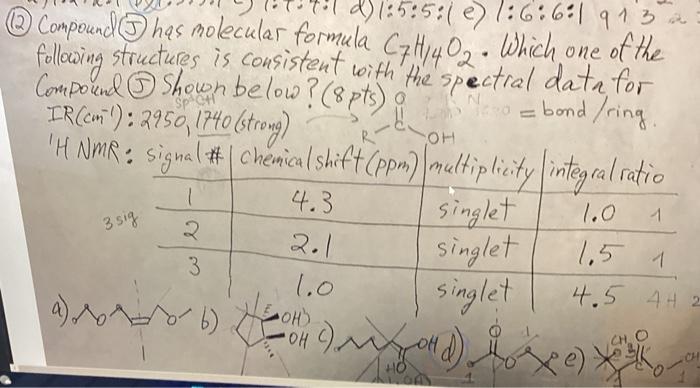 d) 1:5:5:1 e) 1:6:6:1 9 1 3 2
⑫ Compound Ⓙ has molecular formula C7H14O2. Which one of the
following structures is consistent with the spectral data for
Compound Ⓙ shown below? (8 pts)
= bond/ring.
IR(cm⁻¹): 2950, 1740 (strong)
O
R C OH
¹H NMR: signal # chemical shift (ppm) multiplicity integral ratio
1 4.3 singlet 1.0 1
3 sig
2 2.1 singlet 1.5 1
3 1.0 singlet 4.5 4H 2
a) O O b) OH OH c) OH HO d) O O e) CH3 O O CH
1 1